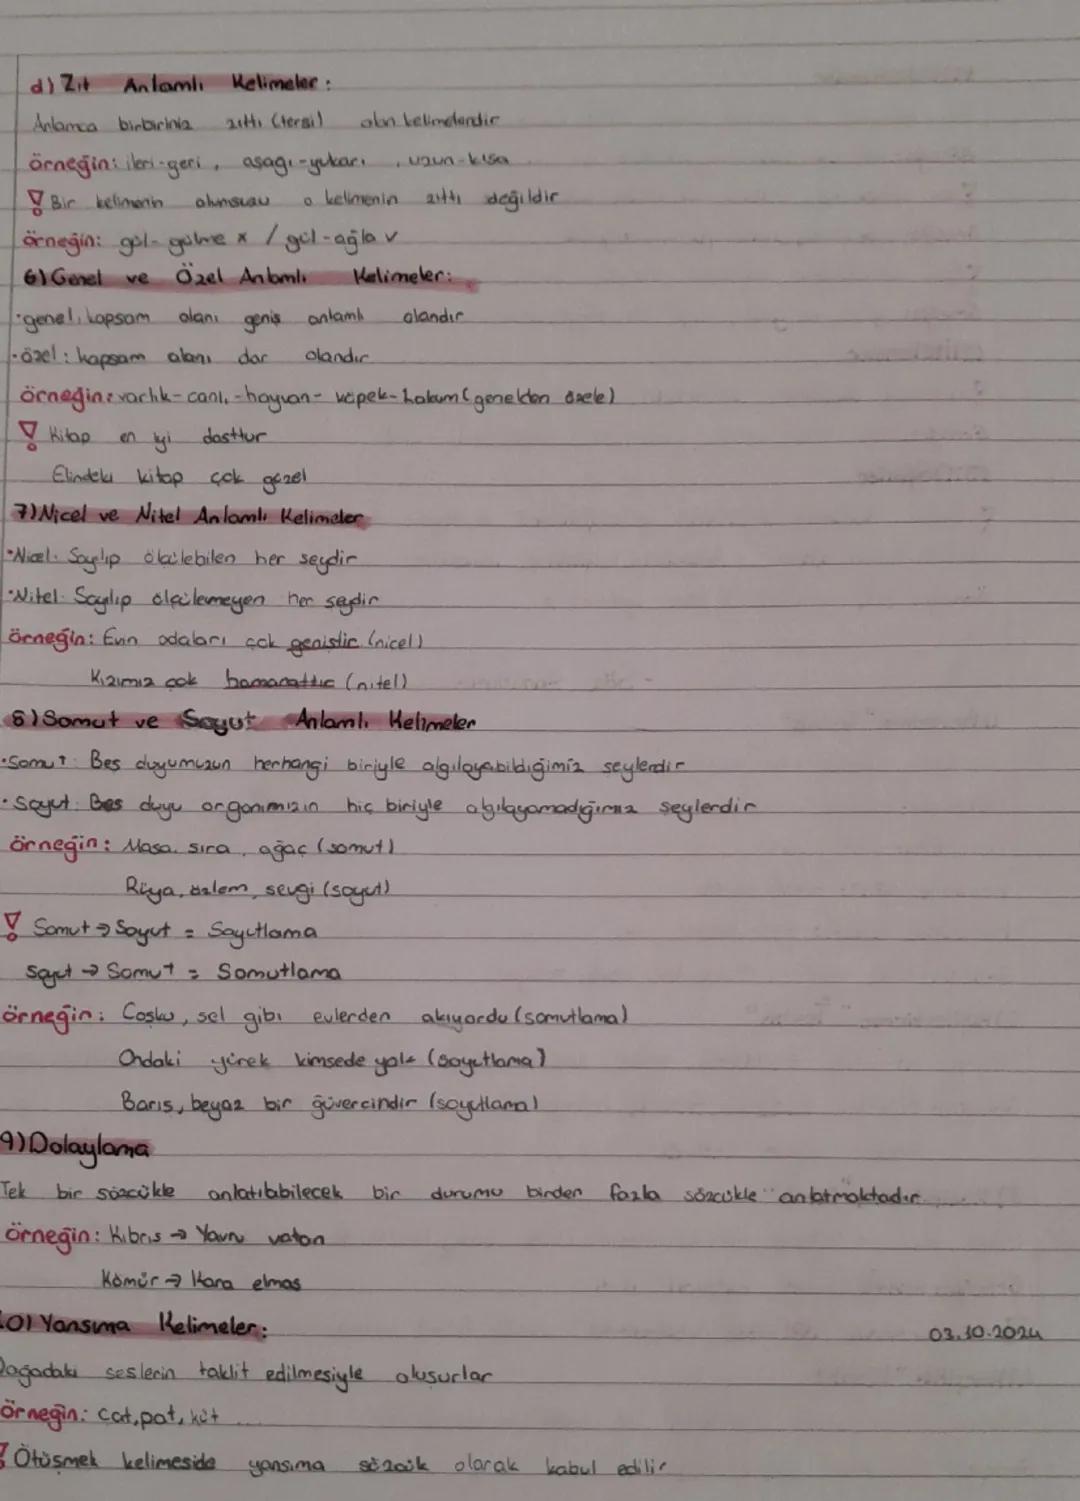 d) Zıt Anlamlı Kelimeler:
Anlamca birbirinia zıttı (tersi) olan kelimelerdir
örneğin: ileri-geri, aşagı-yukarı, uzun-kısa
Bir kelimenin olumsuzu o kelimenin zıttı değildir
örneğin: gül-gülme x / gül-ağla v
6) Genel ve Özel Anlamlı Kelimeler:
·genel: kapsam alanı geniş anlamlı olandır
·özel: kapsam alanı dar olandır
örneğin: varlık-canlı-hayvan-köpek- (genelden özele)
! Kitap en iyi dosttur
Elindeki kitap çok güzel
7) Nicel ve Nitel Anlamlı Kelimeler
·Nicel: Sayılıp ölçülebilen her şeydir
·Nitel: Sayılıp ölçülemeyen her şeydir
örneğin: Evin odaları çok geniştir (nicel)
Kızımız çok hamarattır (nitel)
8) Somut ve Soyut Anlamlı Kelimeler
·Somut: Beş duyumuzun herhangi biriyle algılayabildiğimiz şeylerdir
·Soyut: Beş duyu organımızın hiç biriyle algılayamadığımız şeylerdir
örneğin: Masa, sıra, ağaç (somut)
Rüya, özlem, sevgi (soyut)
! Somut → Soyut = Soyutlama
Soyut → Somut = Somutlama
örneğin: Coşku, sel gibi evlerden akıyordu (somutlama)
Ondaki yürek kimsede yok (soyutlama)
Barış, beyaz bir güvercindir (soyutlama)
9) Dolaylama
Tek bir sözcükle anlatılabilecek bir durumu birden fazla sözcükle anlatmaktadır
örneğin: Kıbrıs → Yavru vatan
Kömür → Kara elmas
10) Yansıma Kelimeler:
03.10.2024
Doğadaki seslerin taklit edilmesiyle oluşurlar
örneğin: çat, pat, küt
! Ötüşmek kelimeside yansıma sözcük olarak kabul edilir